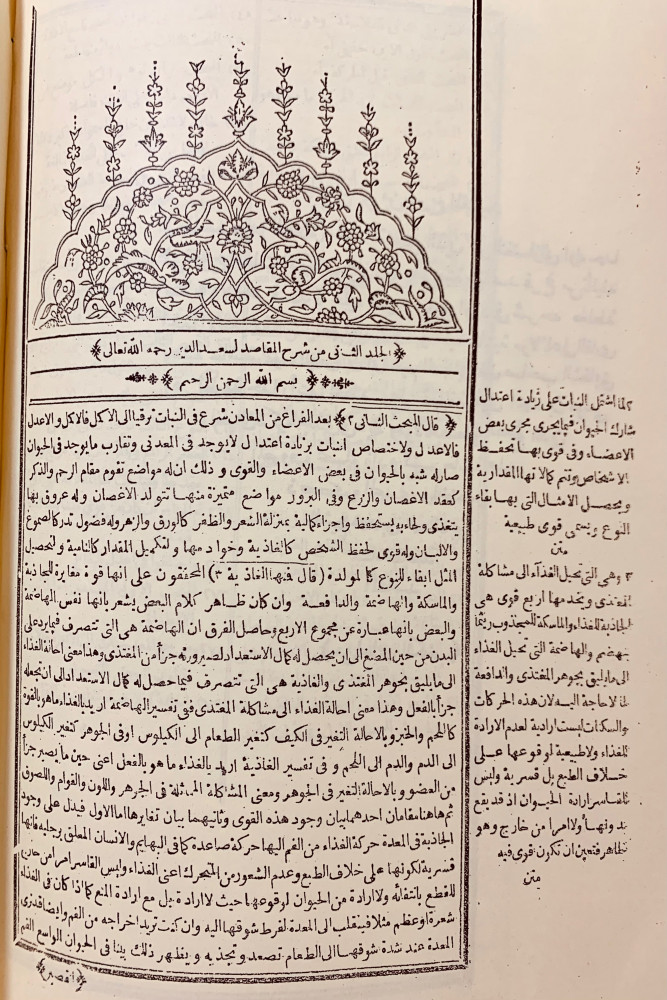 الجلد الثانى من شرح المقاصد لسعد الدين رحمه الله تعالى
بسم الله الرحمن الرحيم
قال المبحث الثانى ٢ بعد الفراغ من المعادن شرع فى النبات ترقيا الى الاكمل فالاكمل والاعدل
فالاعدل ولاختصاص النبات بزيادة اعتدال لايوجد فى المعدنى وتقارب مايوجد فى الحيوان
صار له شبه بالحيوان فى بعض الاعضاء والقوى وذلك ان له مواضع تقوم مقام الرحم والذكر
كعقد الاغصان والزرع وفى البزور مواضع متميزة منها تتولد الاغصان وله عروق بها
يتغذى ولحاء به يستحفظ واجزاء كمالية بمنزلة الشعر والظفر كالورق والزهر وله فضول تدر كالصموغ
والالبان وله قوى لحفظ الشخص كالغاذية وخوادمها ولتكميل المقدار كالنامية ولتحصيل
المثل ابقاء للنوع كالمولدة (قال فنها الغاذية ٣) المحققون على انها قوة مغايرة للجاذبة
والماسكة والهاضمة والدافعة وان كان ظاهر كلام البعض يشعر بانها نفس الهاضمة
والبعض بانها عبارة عن مجموع الاربع وحاصل الفرق ان الهاضمة هى التى تتصرف فيما يرد على
البدن من حين المضغ الى ان يحصل له كمال الاستعداد لصيرورته جزأ من المغتذى وهذا معنى احالة الغذاء
الى مايليق بجوهر المغتذى والغاذية هى التى تتصرف فيما حصل له كمال الاستعداد الى ان يجعله
جزأ بالفعل وهذا معنى احالة الغذاء الى مشاكلة المغتذى فنى تفسير الهاضمة اريد بالغذاء ماهو بالقوة
كاللحم والخبز وبالاحالة التغير فى الكيف كتغير الطعام الى الكيلوس اوفى الجوهر كتغير الكيلوس
الى الدم والدم الى اللحم وفى تفسير الغاذية اريد بالغذاء ماهو بالفعل اعنى حين مايصير جزأ
من العضو وبالاحالة التغير فى الجوهر ومعنى المشاكلة المماثلة فى الجوهر واللون والقوام واللصوق
ثم هاهنا مقامان احدهما بيان وجود هذه القوى وثانيهما بيان تغايرها اما الاول فيدل على وجود
الجاذبة فى المعدة حركة الغذاء من الفم اليها حركة صاعدة كما فى البهايم والانسان المعلق برجليه فانها
قسرية لكونها على خلاف الطبع وعدم الشعور من المتحرك اعنى الغذاء وليس القاسر امرا من خارج
للقطع بانتفائه ولا ارادة من الحيوان لوقوعها حيث لا ارادة بل مع ارادة المنع كما اذا كان فى الغذاء
شعرة او عظم مثلا فينقلب الى المعدة لفرط شوقها اليه وان كنت تريد اخراجه من الفم وايضا قد نرى
المعدة عند شدة شوقها الى الطعام تصعد وتجذبه ويظهر ذلك بينا فى الحيوان الواسع الفم
القصير
٢ لما اشتمل النبات على زيادة اعتدال
شارك الحيوان فيما يجرى مجرى بعض
الاعضاء وفى قوى بها تحفظ
الاشخاص وتتم كمالاتها المقدارية
ويحصل الامثال التى بها بقاء
النوع وتسمى قوى طبيعية
متن
٣ وهى التى تحيل الغذآء الى مشاكلة
المغتذى ويخدمها اربع قوى هى
الجاذبة للغذاء والماسكة للمجذوب ريثما
ينهضم والهاضمة التى تحيل الغذاء
الى مايليق بجوهر المغتذى والدافعة
لما لاحاجة اليه لان هذه الحركات
والسكنات ليست ارادية لعدم الارادة
للغذاء ولاطبيعية لوقوعها على
خلاف الطبع بل قسرية وليس
القاسر ارادة الحيوان اذ قد يقع
بدونها ولا امرا من خارج وهو
ظاهر فتعين ان تكون قوى فيه
متن